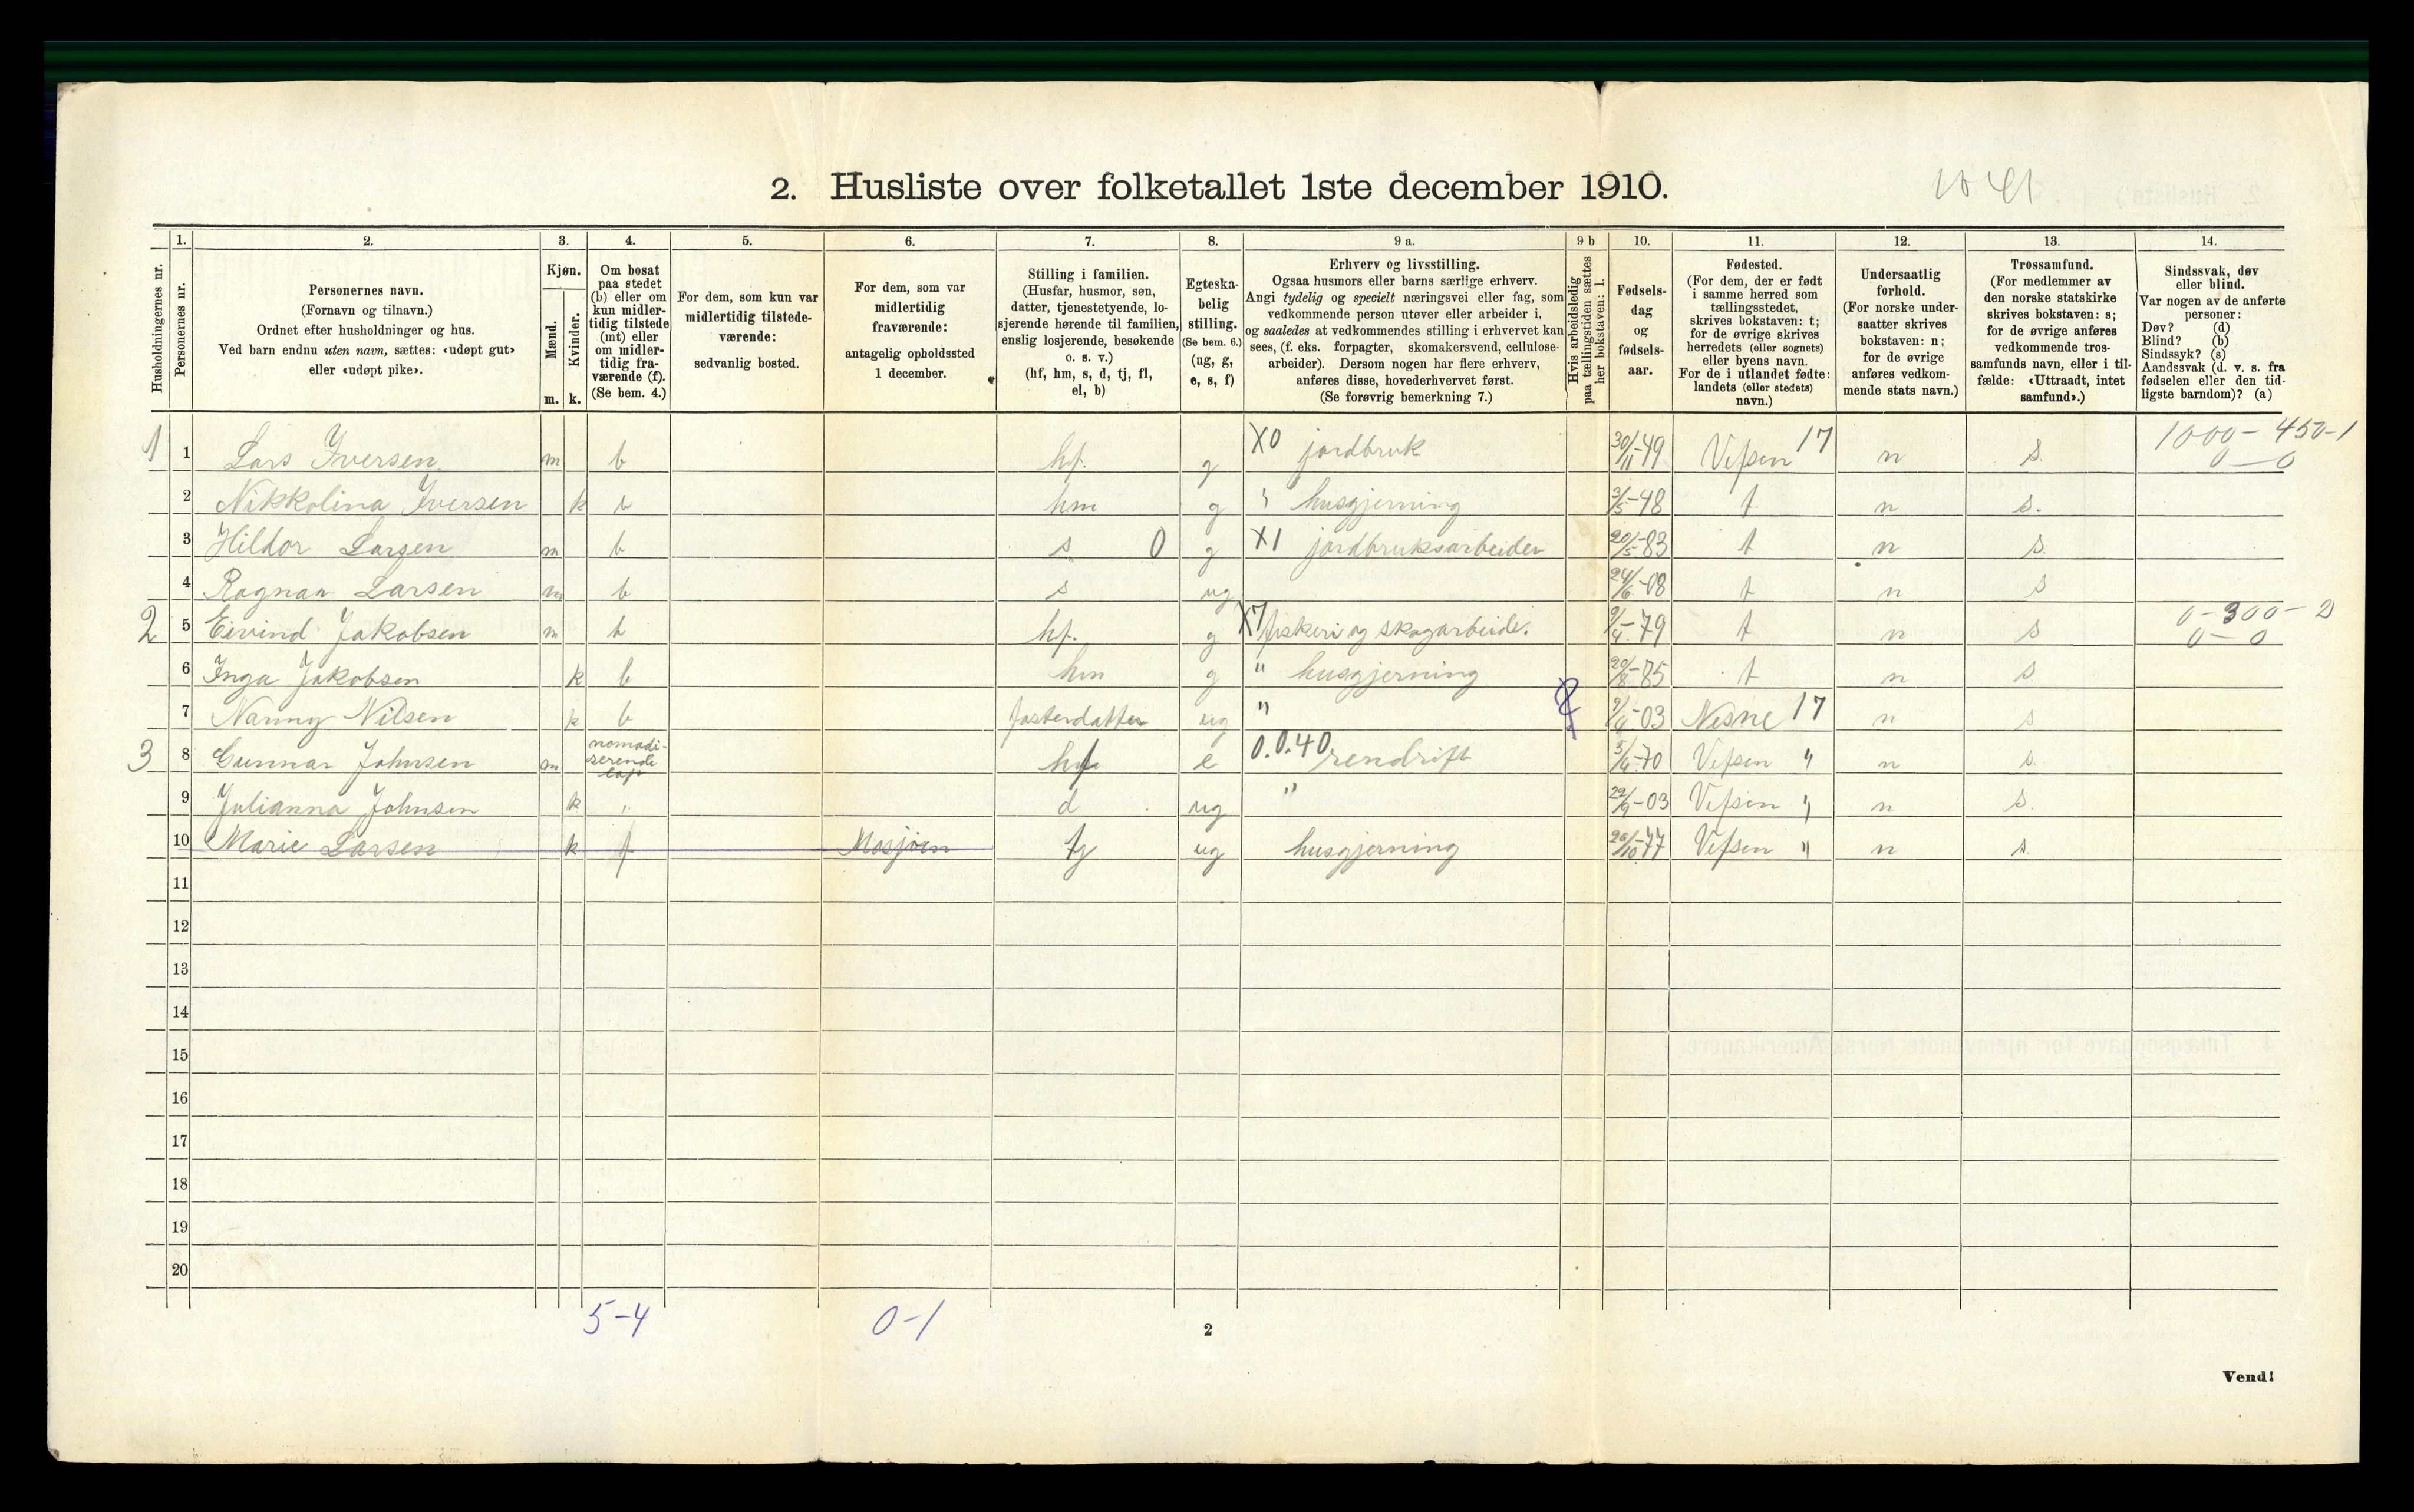 2. Husliste over folketallet 1ste december 1910.
Husholdningernes nr.
1.
Personernes nr.
2.
Personernes navn.
(Fornavn og tilnavn.)
Ordnet efter husholdninger og hus.
Ved barn endnu uten navn, sættes: «udøpt gut»
eller «udøpt pike».
3.
Kjøn.
Mænd.
Kvinder.
m. k.
4.
Om bosat
paa stedet
(b) eller om
kun midler-
tidig tilstede
(mt) eller
om midler-
tidig fra-
værende (f).
(Se bem. 4.)
5.
For dem, som kun var
midlertidig tilstede-
værende:
sedvanlig bosted.
6.
For dem, som var
midlertidig
fraværende:
antagelig opholdssted
1 december.
7.
Stilling i familien.
(Husfar, husmor, søn,
datter, tjenestetyende, lo-
sjerende hørende til familien,
enslig losjerende, besøkende
o. s. v.)
(hf, hm, s, d, tj, fl,
el, b)
8.
Egteska-
belig
stilling.
(Se bem. 6.)
(ug, g,
e, s, f)
9 a.
Erhverv og livsstilling.
Ogsaa husmors eller barns særlige erhverv.
Angi tydelig og specielt næringsvei eller fag, som
vedkommende person utøver eller arbeider i,
og saaledes at vedkommendes stilling i erhvervet kan
sees, (f. eks. forpagter, skomakersvend, cellulose-
arbeider). Dersom nogen har flere erhverv,
anføres disse, hovederhvervet først.
(Se forøvrig bemerkning 7.)
9 b
Hvis arbeidsledig
paa tællingstiden sættes
her bokstaven: l.
10.
Fødsels-
dag
og
fødsels-
aar.
11.
Fødested.
(For dem, der er født
i samme herred som
tællingsstedet,
skrives bokstaven: t;
for de øvrige skrives
herredets (eller sognets)
eller byens navn.
For de i utlandet fødte:
landets (eller stedets)
navn.)
12.
Undersaatlig
forhold.
(For norske under-
saatter skrives
bokstaven: n;
for de øvrige
anføres vedkom-
mende stats navn.)
13.
Trossamfund.
(For medlemmer av
den norske statskirke
skrives bokstaven: s;
for de øvrige anføres
vedkommende tros-
samfunds navn, eller i til-
fælde: «Uttraadt, intet
samfund».)
14.
Sindssvak, døv
eller blind.
Var nogen av de anførte
personer:
Døv? (d)
Blind? (b)
Sindssyk? (s)
Aandssvak (d. v. s. fra
fødselen eller den tid-
ligste barndom)? (a)
1 1 Lars Iversen m b hf. g X0 jordbruk 30/11-49 Vefsen 17 n s. 1000-450-1
0-0
2 Nikkolina Iversen k b hm g " husgjerning 3/5-48 t n s.
3 Hildor Larsen m b s 0 g X1 jordbruksarbeider 20/5-83 t n s.
4 Ragnar Larsen m b s ug 24/6-08 t n s
2 5 Eivind Jakobsen m b hf. g X7 fiskeri og skogarbeide. 9/4-79 t n s 0-300-2
0-0
6 Inga Jakobsen k b hm g " husgjerning 20/8-85 t n s
7 Nanny Nilsen k b fosterdatter ug " 9/4-03 Nesne 17 n s
3 8 Gunnar Johnsen m nomadi-
serende
lap hf e 0.0.40 rendrift 5/4-70 Vefsen " n s.
9 Julianna Johnsen k " d ug " 22/9-03 Vefsen " n s.
10 Marie Larsen k f Mosjøen tj ug husgjerning 26/10-77 Vefsen " n s.
11
12
13
14
15
16
17
18
19
20
5-4 0-1
2
Vend!